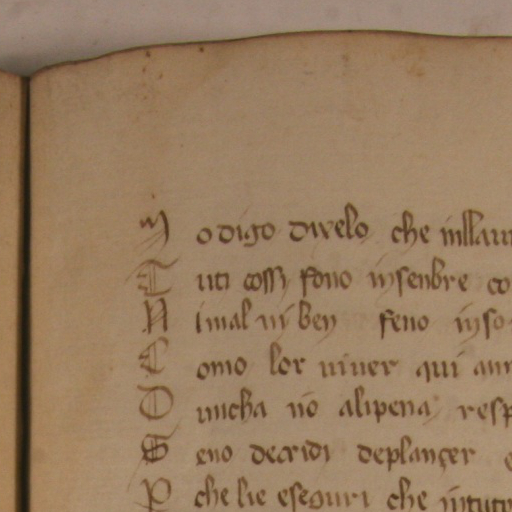 M odigo dixelo che inllaui
T uti cossi sono insenbre co
N i mal ni ben seno inso
C omo lor uiuer qui aui
O nucha no ali pena resp
S eno decridi deplançer
P che lie eseguri che intut